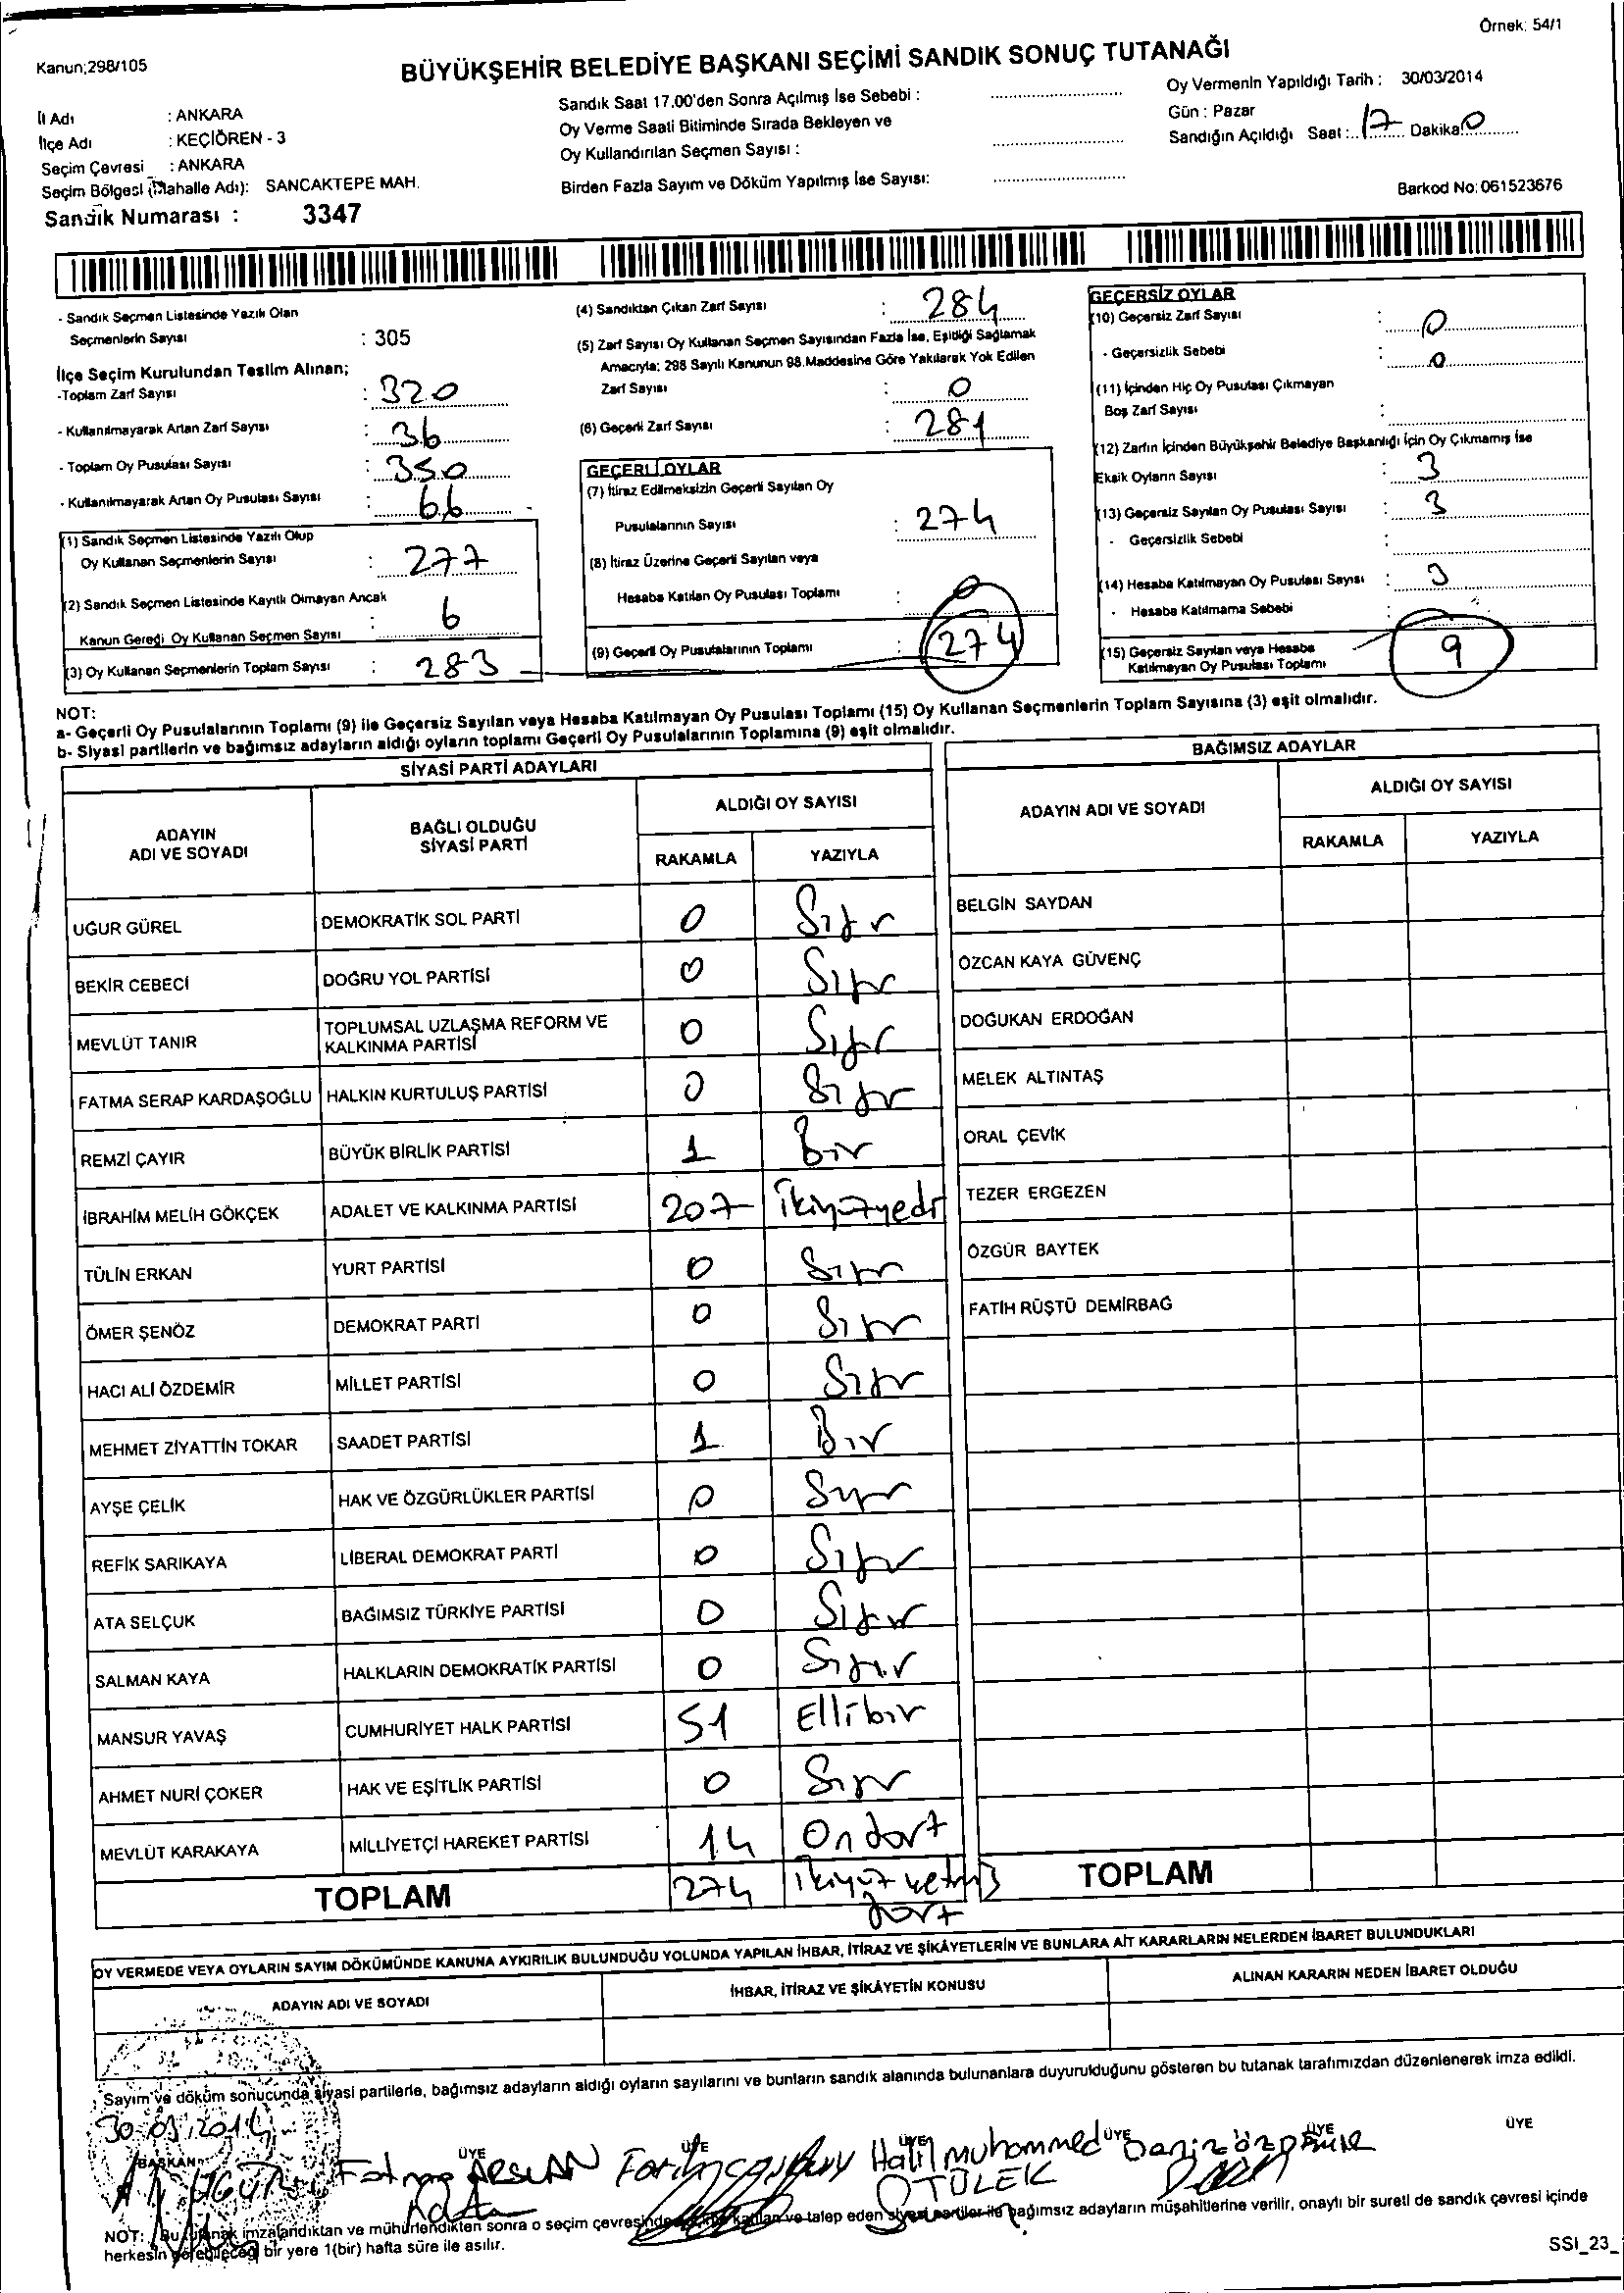 Örnek: 54/1
Kanun;298/105
BÜYÜKŞEHİR BELEDİYE BAŞKANI SEÇİMİ SANDIK SONUÇ TUTANAĞI
İl Adı : ANKARA
İlçe Adı : KEÇİÖREN - 3
Seçim Çevresi : ANKARA
Seçim Bölgesi (Mahalle Adı): SANCAKTEPE MAH.
Sandık Numarası : 3347
Sandık Saat 17.00'den Sonra Açılmış İse Sebebi :
Oy Verme Saati Bitiminde Sırada Bekleyen ve
Oy Kullandırılan Seçmen Sayısı :
Birden Fazla Sayım ve Döküm Yapılmış İse Sayısı:
Oy Vermenin Yapıldığı Tarih : 30/03/2014
Gün : Pazar
Sandığın Açıldığı Saat : 17 Dakika: 0
Barkod No: 061523676
- Sandık Seçmen Listesinde Yazılı Olan
Seçmenlerin Sayısı : 305
İlçe Seçim Kurulundan Teslim Alınan;
-Toplam Zarf Sayısı : 320
- Kullanılmayarak Artan Zarf Sayısı : 36
- Toplam Oy Pusulası Sayısı : 350
- Kullanılmayarak Artan Oy Pusulası Sayısı : 66
(1) Sandık Seçmen Listesinde Yazılı Olup
Oy Kullanan Seçmenlerin Sayısı : 277
(2) Sandık Seçmen Listesinde Kayıtlı Olmayan Ancak
Kanun Gereği Oy Kullanan Seçmen Sayısı : 6
(3) Oy Kullanan Seçmenlerin Toplam Sayısı : 283
(4) Sandıktan Çıkan Zarf Sayısı : 284
(5) Zarf Sayısı Oy Kullanan Seçmen Sayısından Fazla İse, Eşitliği Sağlamak
Amacıyla; 298 Sayılı Kanunun 98.Maddesine Göre Yakılarak Yok Edilen
Zarf Sayısı : 0
(6) Geçerli Zarf Sayısı : 281
GEÇERLİ OYLAR
(7) İtiraz Edilmeksizin Geçerli Sayılan Oy
Pusulalarının Sayısı : 274
(8) İtiraz Üzerine Geçerli Sayılan veya
Hesaba Katılan Oy Pusulası Toplamı : 0
(9) Geçerli Oy Pusulalarının Toplamı : 274
GEÇERSİZ OYLAR
(10) Geçersiz Zarf Sayısı : 0
- Geçersizlik Sebebi : 0
(11) İçinden Hiç Oy Pusulası Çıkmayan
Boş Zarf Sayısı :
(12) Zarfın İçinden Büyükşehir Belediye Başkanlığı İçin Oy Çıkmamış İse
Eksik Oyların Sayısı : 3
(13) Geçersiz Sayılan Oy Pusulası Sayısı : 3
- Geçersizlik Sebebi :
(14) Hesaba Katılmayan Oy Pusulası Sayısı : 3
- Hesaba Katılmama Sebebi :
(15) Geçersiz Sayılan veya Hesaba
Katılmayan Oy Pusulası Toplamı 9
NOT:
a- Geçerli Oy Pusulalarının Toplamı (9) ile Geçersiz Sayılan veya Hesaba Katılmayan Oy Pusulası Toplamı (15) Oy Kullanan Seçmenlerin Toplam Sayısına (3) eşit olmalıdır.
b- Siyasi partilerin ve bağımsız adayların aldığı oyların toplamı Geçerli Oy Pusulalarının Toplamına (9) eşit olmalıdır.
SİYASİ PARTİ ADAYLARI
ADAYIN ADI VE SOYADI
BAĞLI OLDUĞU SİYASİ PARTİ
ALDIĞI OY SAYISI
RAKAMLA YAZIYLA
UĞUR GÜREL DEMOKRATİK SOL PARTİ 0 Sıfır
BEKİR CEBECİ DOĞRU YOL PARTİSİ 0 Sıfır
MEVLÜT TANIR TOPLUMSAL UZLAŞMA REFORM VE KALKINMA PARTİSİ 0 Sıfır
FATMA SERAP KARDAŞOĞLU HALKIN KURTULUŞ PARTİSİ 0 Sıfır
REMZİ ÇAYIR BÜYÜK BİRLİK PARTİSİ 1 Bir
İBRAHİM MELİH GÖKÇEK ADALET VE KALKINMA PARTİSİ 207 İkiyüzyedi
TÜLİN ERKAN YURT PARTİSİ 0 Sıfır
ÖMER ŞENÖZ DEMOKRAT PARTİ 0 Sıfır
HACI ALİ ÖZDEMİR MİLLET PARTİSİ 0 Sıfır
MEHMET ZİYATTİN TOKAR SAADET PARTİSİ 1 Bir
AYŞE ÇELİK HAK VE ÖZGÜRLÜKLER PARTİSİ 0 Sıfır
REFİK SARIKAYA LİBERAL DEMOKRAT PARTİ 0 Sıfır
ATA SELÇUK BAĞIMSIZ TÜRKİYE PARTİSİ 0 Sıfır
SALMAN KAYA HALKLARIN DEMOKRATİK PARTİSİ 0 Sıfır
MANSUR YAVAŞ CUMHURİYET HALK PARTİSİ 51 Ellibir
AHMET NURİ ÇOKER HAK VE EŞİTLİK PARTİSİ 0 Sıfır
MEVLÜT KARAKAYA MİLLİYETÇİ HAREKET PARTİSİ 14 Ondört
TOPLAM 274 İkiyüz yetmiş dört
BAĞIMSIZ ADAYLAR
ADAYIN ADI VE SOYADI
ALDIĞI OY SAYISI
RAKAMLA YAZIYLA
BELGİN SAYDAN
ÖZCAN KAYA GÜVENÇ
DOĞUKAN ERDOĞAN
MELEK ALTINTAŞ
ORAL ÇEVİK
TEZER ERGEZEN
ÖZGÜR BAYTEK
FATİH RÜŞTÜ DEMİRBAĞ
TOPLAM
OY VERMEDE VEYA OYLARIN SAYIM DÖKÜMÜNDE KANUNA AYKIRILIK BULUNDUĞU YOLUNDA YAPILAN İHBAR, İTİRAZ VE ŞİKÂYETLERİN VE BUNLARA AİT KARARLARIN NELERDEN İBARET BULUNDUKLARI
ADAYIN ADI VE SOYADI
İHBAR, İTİRAZ VE ŞİKÂYETİN KONUSU
ALINAN KARARIN NEDEN İBARET OLDUĞU
Sayım ve döküm sonucunda siyasi partilerle, bağımsız adayların aldığı oyların sayılarını ve bunların sandık alanında bulunanlara duyurulduğunu gösteren bu tutanak tarafımızdan düzenlenerek imza edildi.
30.03.2014
BAŞKAN ÜYE ÜYE ÜYE ÜYE ÜYE ÜYE
Fatma ARSLAN
Halil Muhammed
OTÜLEK
NOT: Bu tutanak imzalandıktan ve mühürlendikten sonra o seçim çevresinde katılan ve talep eden siyasi partiler ile bağımsız adayların müşahitlerine verilir, onaylı bir sureti de sandık çevresi içinde
herkesin görebileceği bir yere 1(bir) hafta süre ile asılır.
SSI_23_